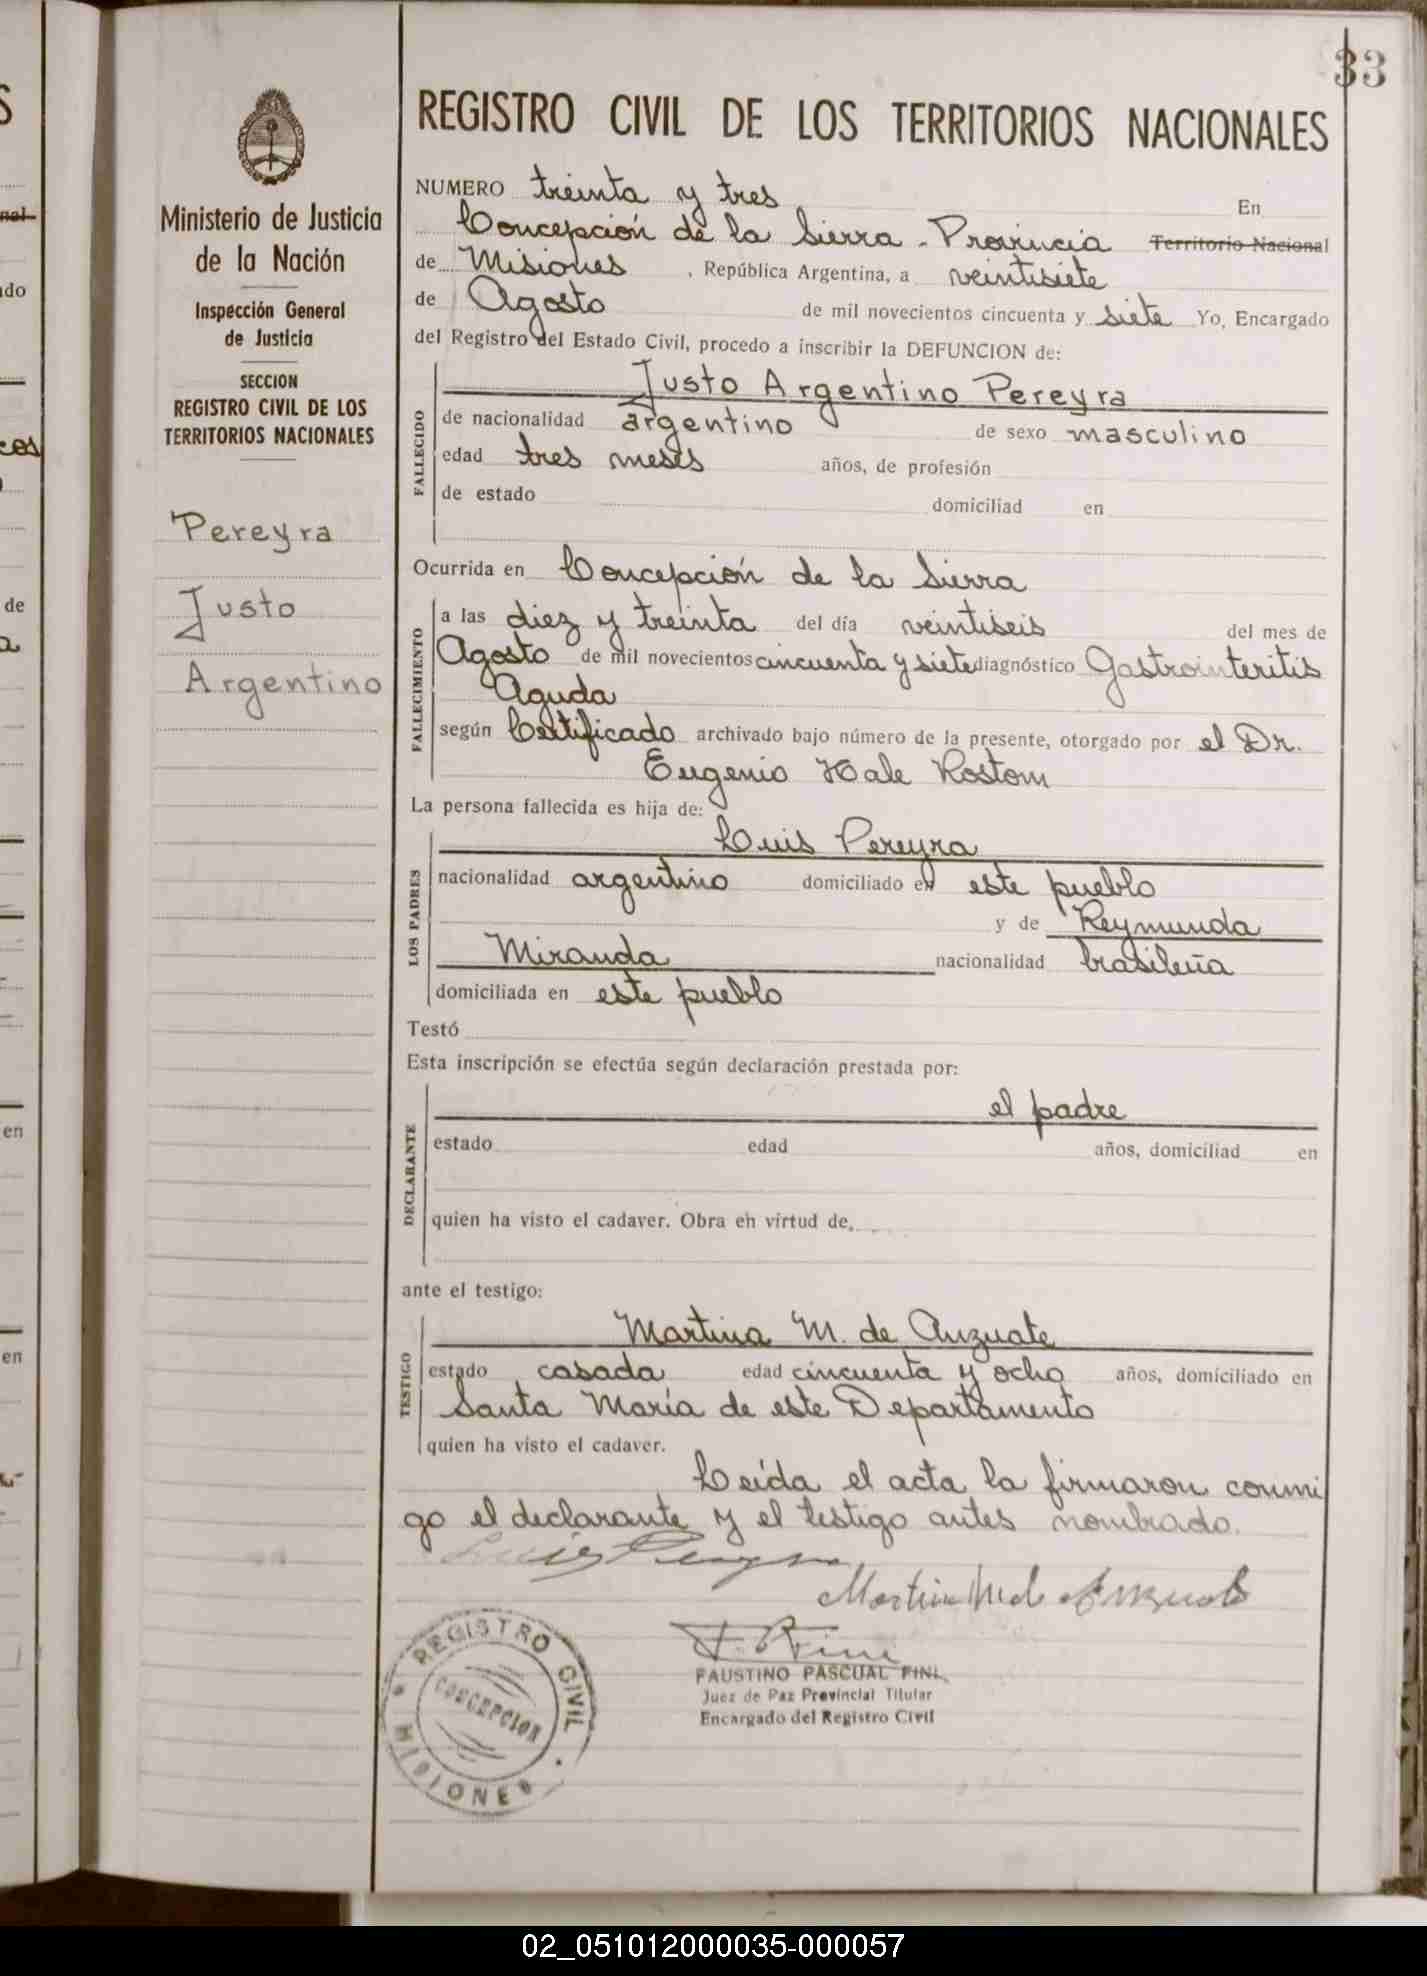 33
REGISTRO CIVIL DE LOS TERRITORIOS NACIONALES
Ministerio de Justicia
de la Nación
Inspección General
de Justicia
SECCION
REGISTRO CIVIL DE LOS
TERRITORIOS NACIONALES
Pereyra
Justo
Argentino
NUMERO treinta y tres En
Concepción de la Sierra - Provincia Territorio Nacional
de Misiones, República Argentina, a veintisiete
de Agosto de mil novecientos cincuenta y siete Yo, Encargado
del Registro del Estado Civil, procedo a inscribir la DEFUNCION de:
FALLECIDO
Justo Argentino Pereyra
de nacionalidad argentino de sexo masculino
edad tres meses años, de profesión
de estado domiciliad en
Ocurrida en Concepción de la Sierra
FALLECIMIENTO
a las diez y treinta del día veintiseis del mes de
Agosto de mil novecientos cincuenta y siete diagnóstico Gastrointeritis
Aguda
según Certificado archivado bajo número de la presente, otorgado por el Dr.
Eugenio Kale Rostom
La persona fallecida es hija de:
LOS PADRES
Luis Pereyra
nacionalidad argentino domiciliado en este pueblo
y de Reymunda
Miranda nacionalidad brasileña
domiciliada en este pueblo
Testó
Esta inscripción se efectúa según declaración prestada por:
DECLARANTE
el padre
estado edad años, domiciliad en
quien ha visto el cadaver. Obra en virtud de
ante el testigo:
TESTIGO
Martina M. de Anzuate
estado casada edad cincuenta y ocho años, domiciliado en
Santa María de este Departamento
quien ha visto el cadaver.
Leída el acta la firmaron conmi
go el declarante y el testigo antes nombrado.
Luis Pereyra
F. P. Fini
FAUSTINO PASCUAL FINI
Juez de Paz Provincial Titular
Encargado del Registro Civil
REGISTRO CIVIL
CONCEPCION
MISIONES
02_051012000035-000057